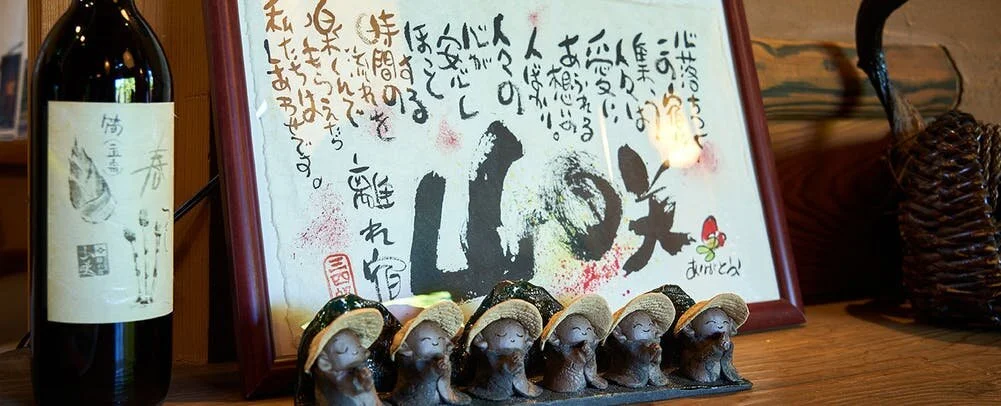 心落ちつく
この宿に
集う
人々は
愛に
あふれる
想いの
人ばかり。
人々の
心が
安心し
ほっと
する
時間の
流れを
楽しんで
もらえたら
私たちは
しあわせです。
離れ宿
山咲
ありがとう!
春